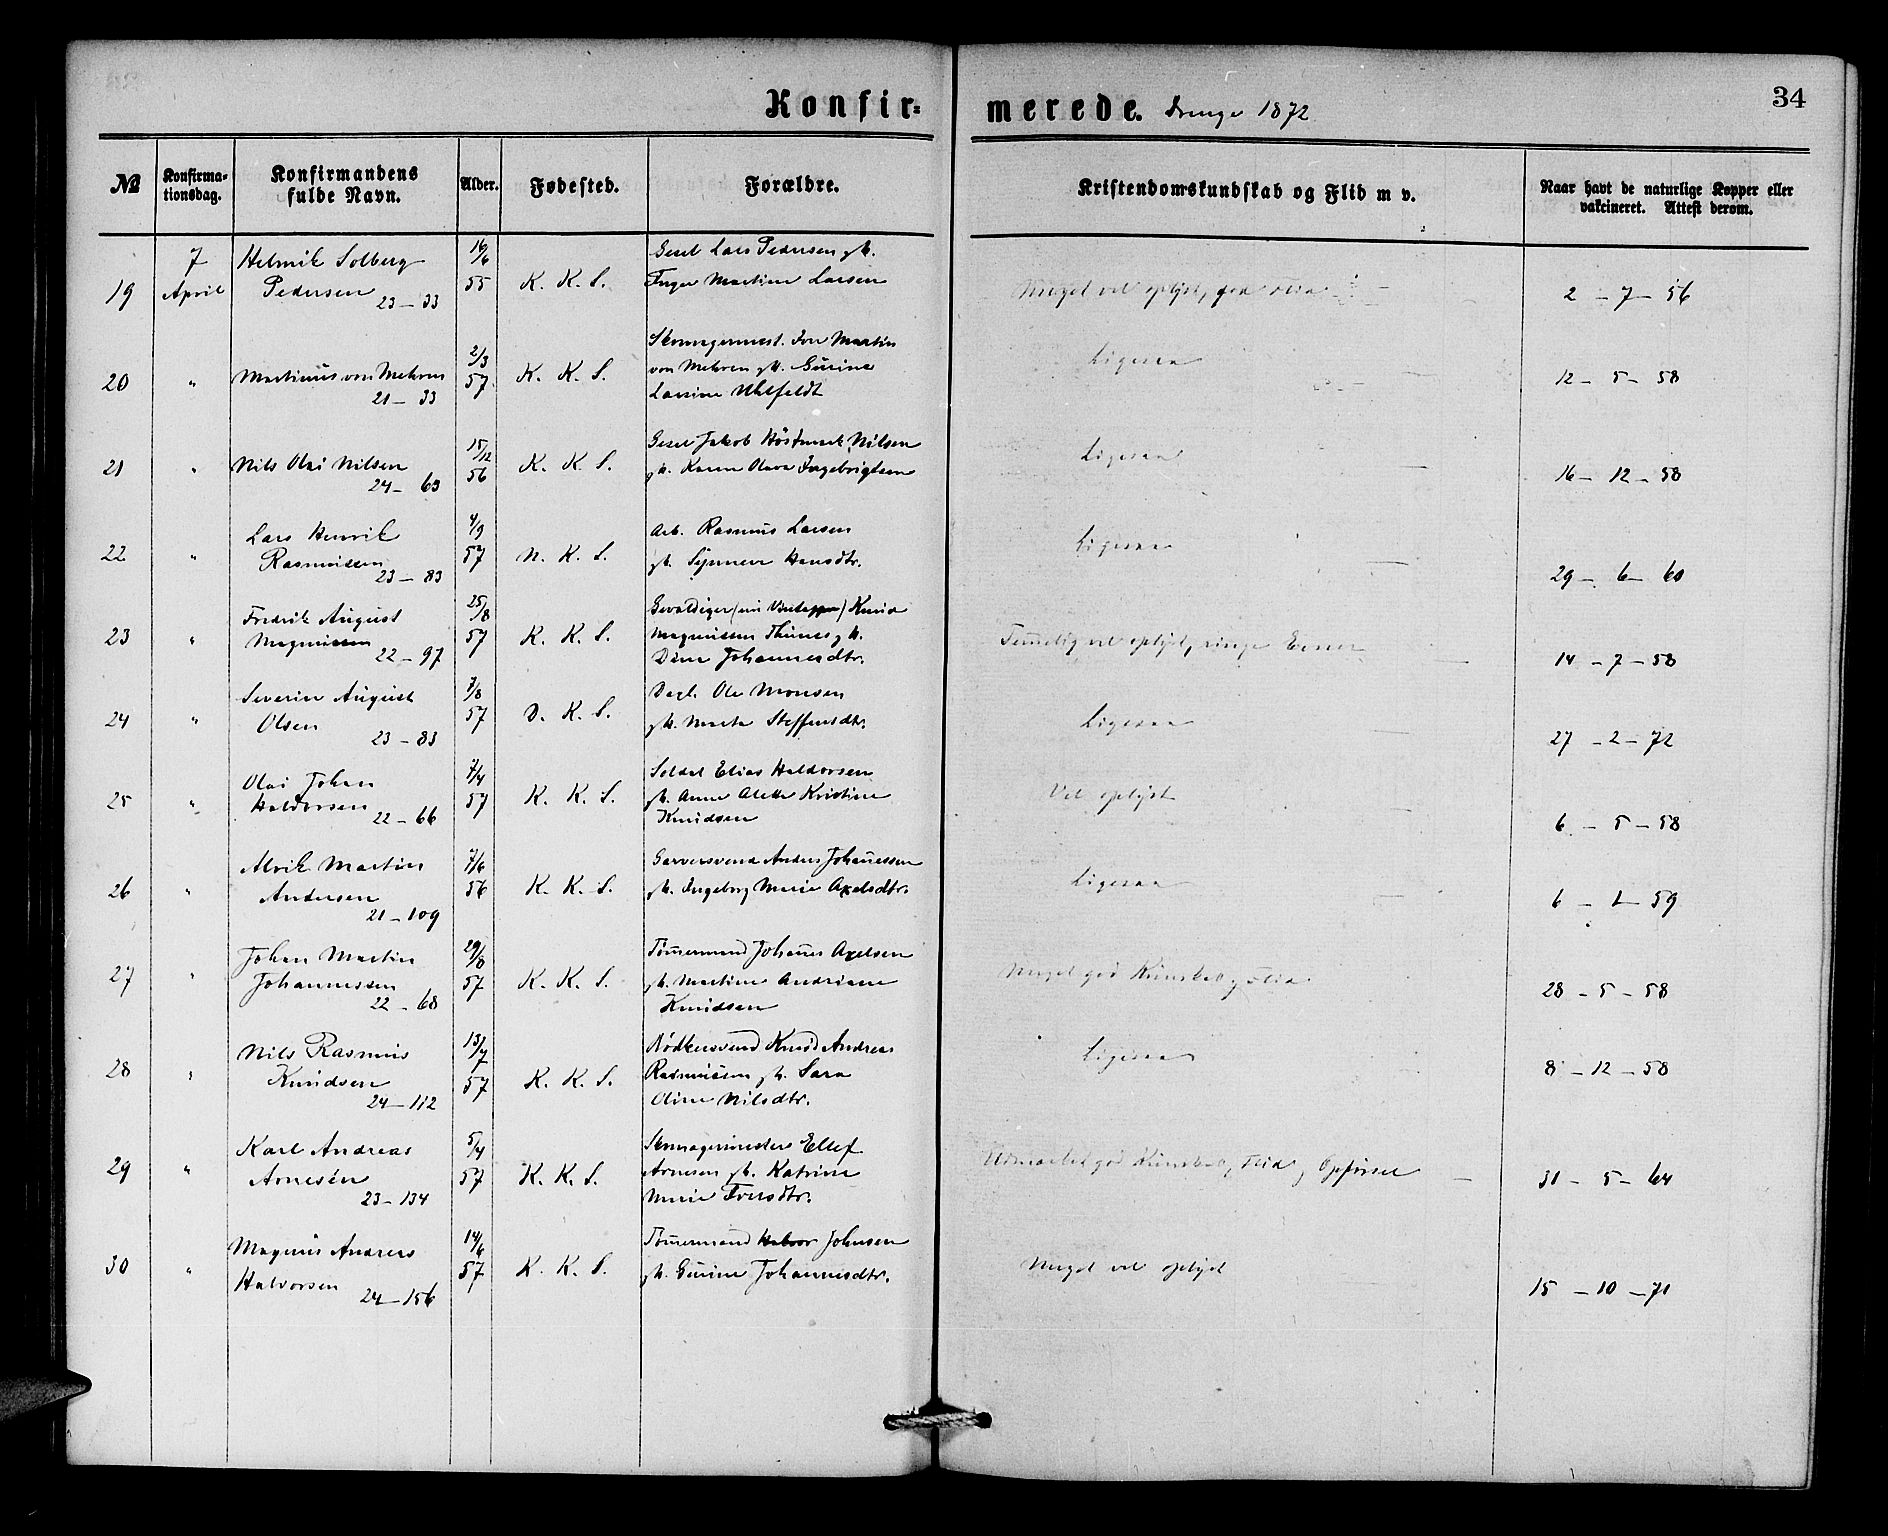 Konfir= merede. Drenge 1872
34
№ Konfirma= tionsdag. Konfirmandens fulde Navn. Alder. Fødested. Forældre. Kristendomskundskab og Flid m v. Naar havt de naturlige Kopper eller vakcineret. Attest derom.
7 Helmik Solberg 16/6 Gesel Lars Pedersen gh.
19 April Pedersen 55 K. K. S. Inger Martine Larsen Meget vel oplyst, god Flid 2 - 7 - 56
23 - 33
Skomagermest. Martin
20 " Martinus von Mehren 2/3 57 K. K. S. von Mehren gh. Gurine Ligesaa 12 - 5 - 58
21 - 33 Larsine Uhlfeldt
15/12 Gesel Jakob Nilsen
21 " Nils Olai Nilsen 56 K. K. S. gh. Karen Olava Ingebrigtsen Ligesaa 16 - 12 - 58
24 - 63
Lars Henrik 4/9 Arb. Rasmus Larsen
22 " Rasmussen 57 N. K. S. gh. Synneve Hansdtr. Ligesaa 29 - 6 - 60
23 - 83
Fredrik August 25/8 Gevaldiger Knud
23 " Magnussen 57 K. K. S. Magnussen gh. Temelig vel oplyst, ringe Evner 14 - 7 - 58
22 - 97 Dine Johannesdtr.
Severin August 7/8 Dagl. Ole Monsen
24 " Olsen 57 D. K. S. gh. Marta Steffensdtr. Ligesaa 27 - 2 - 72
23 - 83
Olai Johan 7/4 Soldat Elias Haldorsen
25 " Haldorsen 57 K. K. S. gh. Anne Aletta Kristine Vel oplyst 6 - 5 - 58
22 - 66 Knudsen
Alrik Martin 7/6 Garversvend Anders Johanessen
26 " Andersen 56 K. K. S. gh. Ingeborg Marie Axelsdtr. Ligesaa 6 - 1 - 59
21 - 109
Johan Martin 29/8 Tømermand Johanes Axelsen
27 " Johannessen 57 K. K. S. gh. Martine Andriane Meget god Kunskab og Flid 28 - 5 - 58
22 - 68 Knudsen
Nils Rasmus 13/7 Bødkersvend Knud Andreas
28 " Knudsen 57 K. K. S. Rasmussen gh. Sara Ligesaa 8 - 12 - 58
24 - 112 Oline Nilsdtr.
Karl Andreas 5/4 Skomagermester Ellef
29 " Arnesen 57 K. K. S. Arnesen gh. Katrine Udmærket god Kunskab, Flid og Opførsel 31 - 5 - 64
23 - 134 Marie Iversdtr.
Magnus Andreas 14/6 Tømermand Johnsen
30 " Halvorsen 57 K. K. S. gh. Gurine Johannesdtr. Meget vel oplyst 15 - 10 - 71
24 - 156